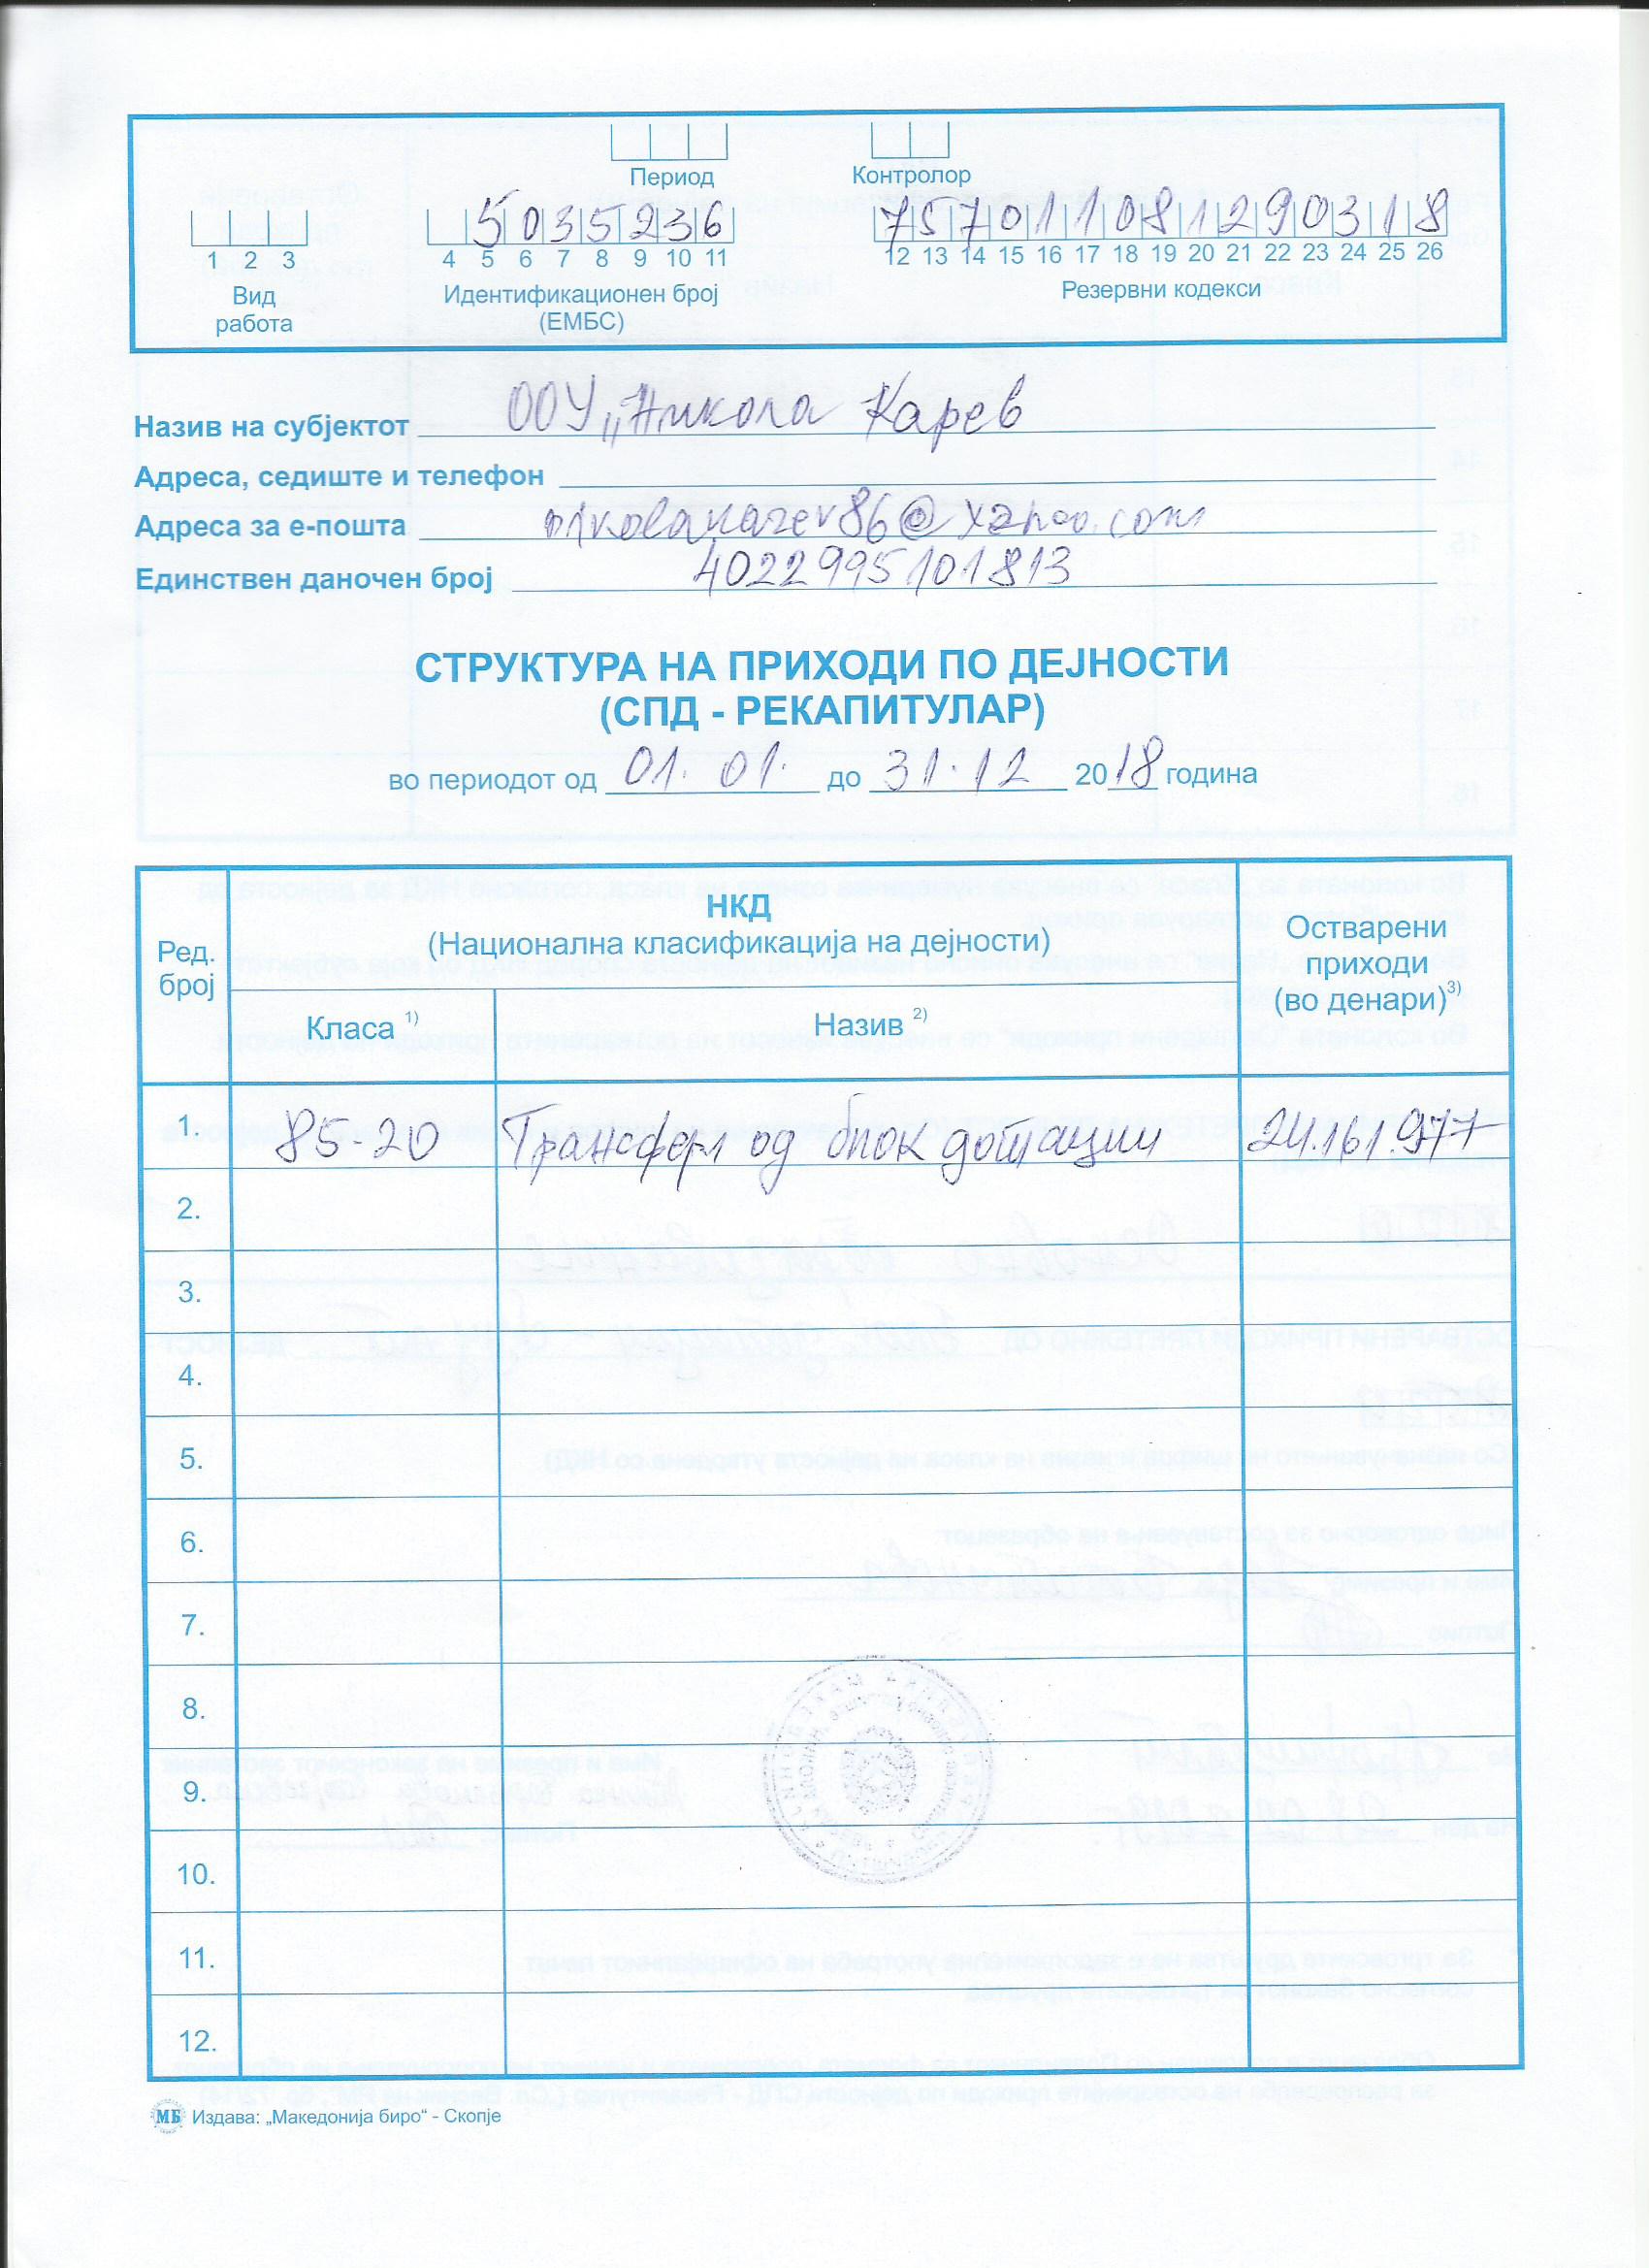 Период Контролор
5035236 757011081290318
1 2 3 4 5 6 7 8 9 10 11 12 13 14 15 16 17 18 19 20 21 22 23 24 25 26
Вид Идентификационен број Резервни кодекси
работа (ЕМБС)
Назив на субјектот ООУ „Никола Карев
Адреса, седиште и телефон
Адреса за е-пошта nikolakarev86@yahoo.com
Единствен даночен број 4022995101813
СТРУКТУРА НА ПРИХОДИ ПО ДЕЈНОСТИ
(СПД - РЕКАПИТУЛАР)
во периодот од 01.01. до 31.12 2018 година
Ред. број
НКД
(Национална класификација на дејности)
Остварени
приходи
(во денари)3)
Класа 1) Назив 2)
1. 85-20 Трансфери од блок дотации 24.161.977
2.
3.
4.
5.
6.
7.
8.
9.
10.
11.
12.
МБ Издава: „Македонија биро“ - Скопје